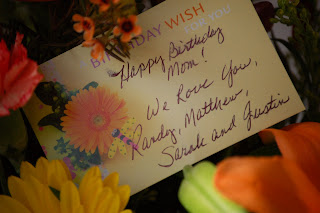 BIRTHDAY WISH
FOR YOU
Happy Birthday
Mom!
We Love You,
Randy, Matthew,
Sarah and Justin